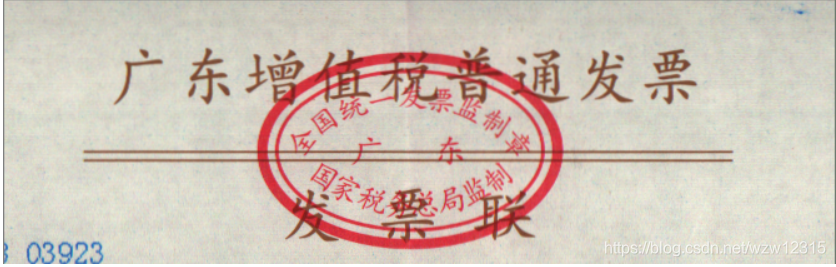 广东增值税普通发票
全国统一发票监制章
广东
国家税务总局监制
发票联
03923
https://blog.csdn.net/wzw12315